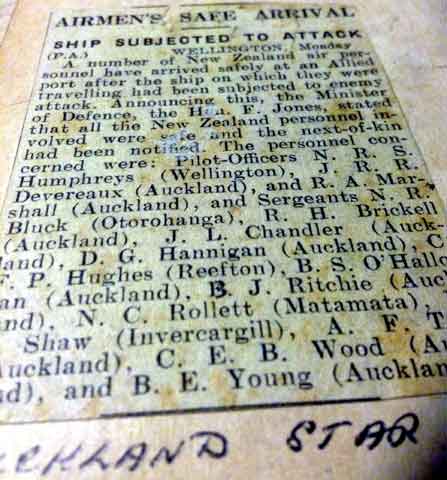 AIRMEN'S SAFE ARRIVAL
SHIP SUBJECTED TO ATTACK
(P.A.) WELLINGTON, Monday
A number of New Zealand air per-
sonnel have arrived safely at an Allied
port after the ship on which they were
travelling had been subjected to enemy
attack. Announcing this, the Minister
of Defence, the Hon. F. Jones, stated
that all the New Zealand personnel in-
volved were safe and the next-of-kin
had been notified. The personnel con-
cerned were: Pilot-Officers N. R. S.
Humphreys (Wellington), J. R. R.
Devereaux (Auckland), and R. A. Mar-
shall (Auckland), and Sergeants N. R.
Bluck (Otorohanga), R. H. Brickell
(Auckland), J. L. Chandler (Auck-
land), D. G. Hannigan (Auckland), C.
F. P. Hughes (Reefton), B. S. O'Hallo
an (Auckland), B. J. Ritchie (Auc
nd), N. C. Rollett (Matamata),
Shaw (Invercargill), A. F. T
Auckland), C. E. B. Wood (Au
nd), and B. E. Young (Aucklan
CKLAND STAR